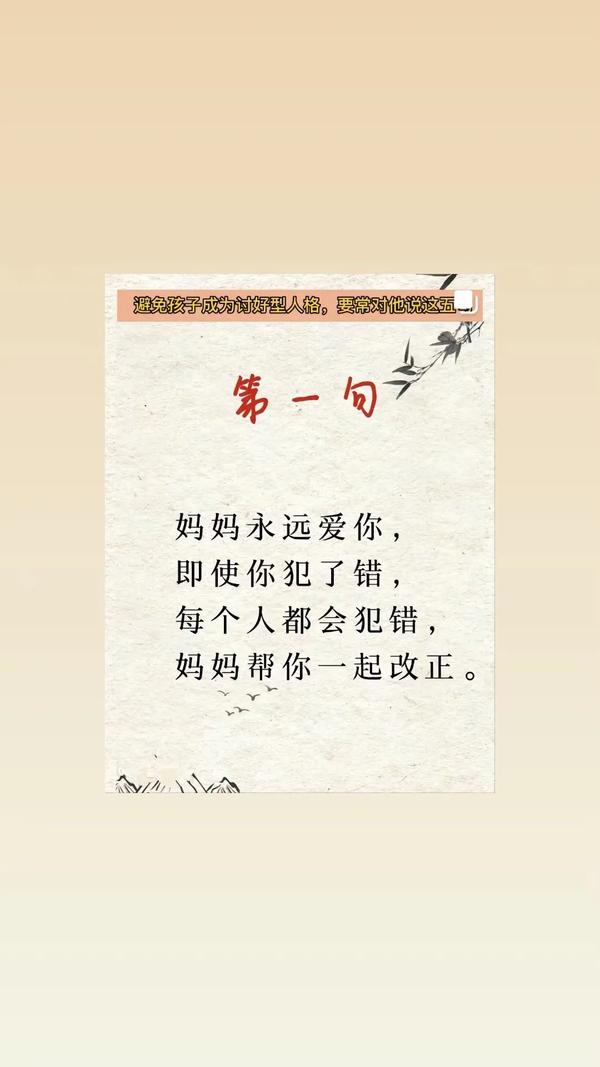 避免孩子成为讨好型人格，要常对他说这五
第一句
妈妈永远爱你，
即使你犯了错，
每个人都会犯错，
妈妈帮你一起改正。